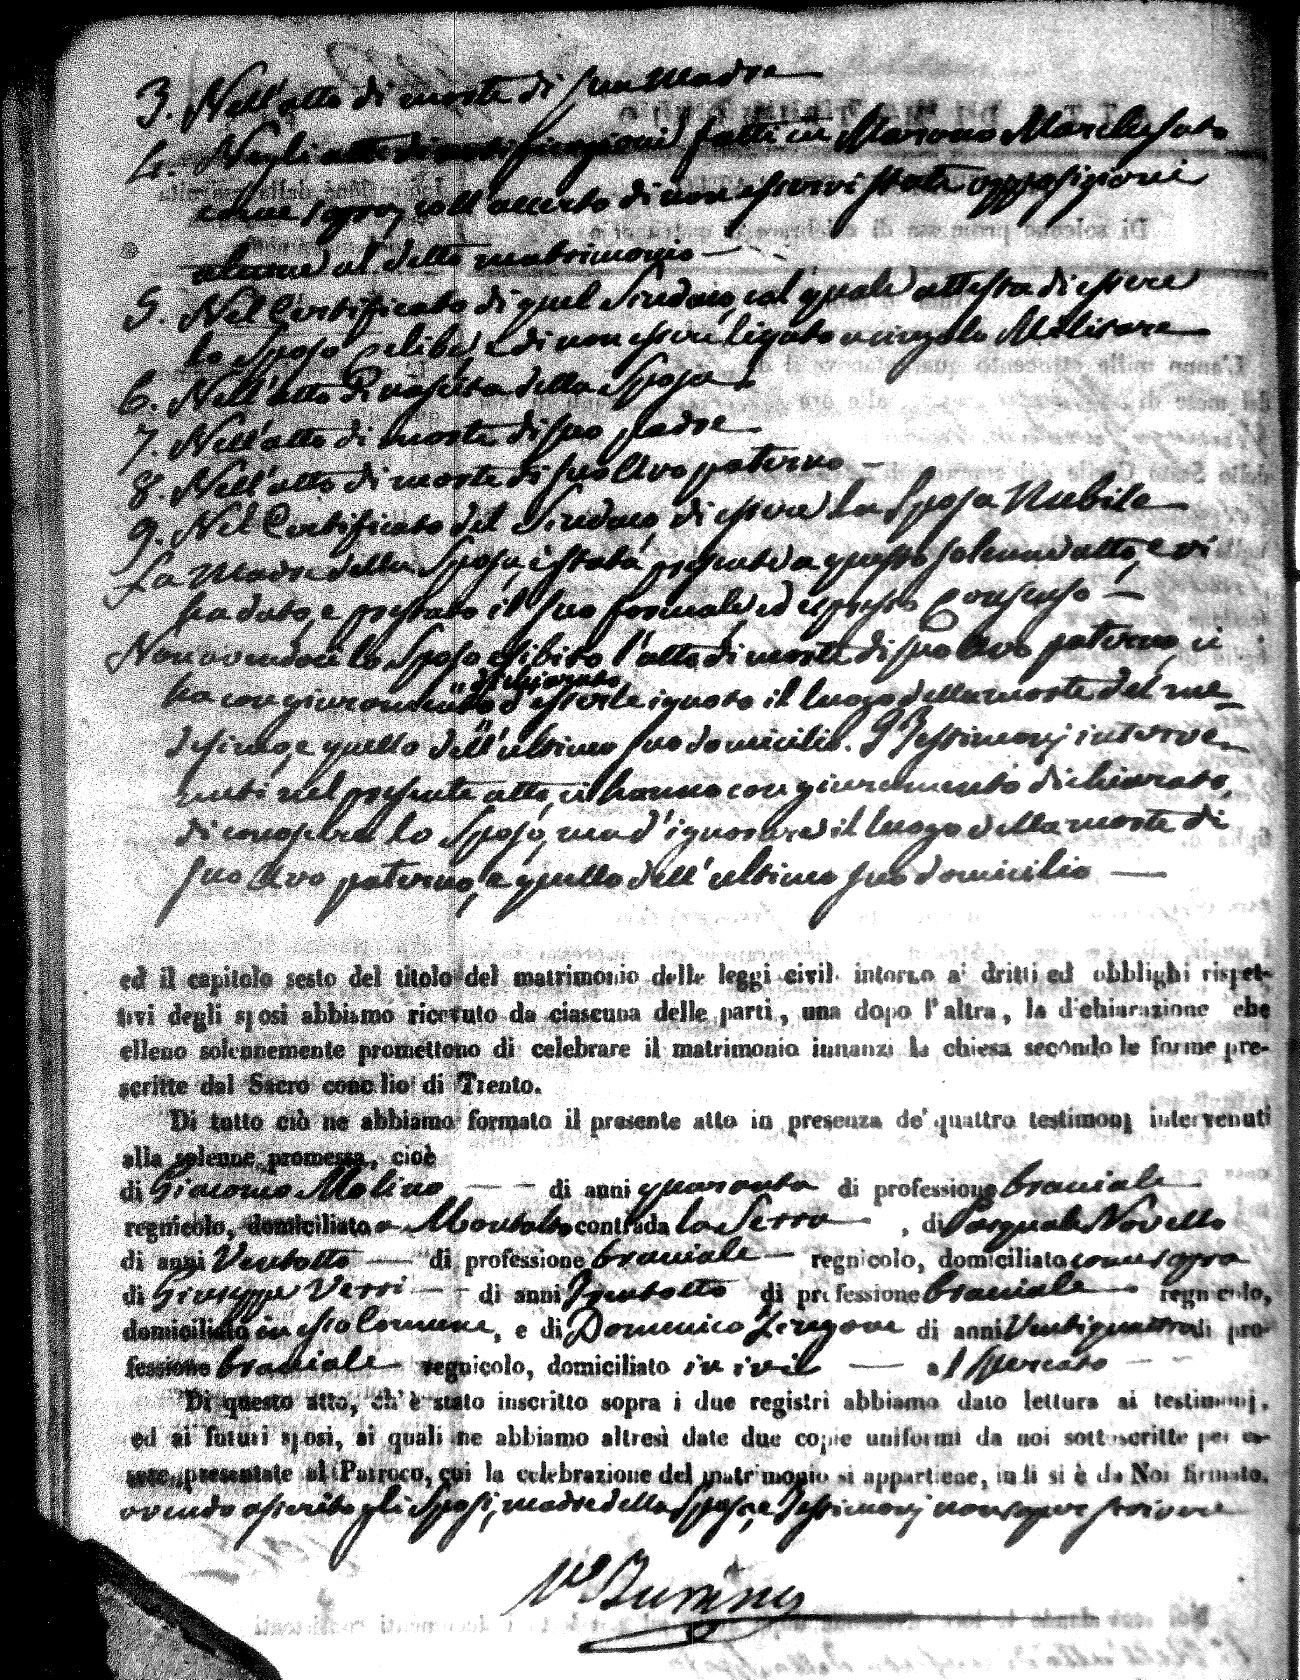 3. Nell'atto di morte di sua Madre
4. Negli atti di notificazioni fatti in Marano Marchesato
come sopra, coll'accerto di non esservi state opposizioni
alcune al detto matrimonio
5. Nel Certificato di quel Sindaco, col quale attesta di essere
lo Sposo Celibe, e di non essere ligato a vincolo Militare
6. Nell'atto di nascita della Sposa
7. Nell'atto di morte di suo padre
8. Nell'atto di morte di suo Avo paterno
9. Nel Certificato del Sindaco di essere la Sposa Nubile
La Madre della Sposa, è stata presente a questo solenne atto, e vi
ha dato, e prestato il suo formale, ed espresso Consenso
Non avendoci lo Sposo esibito l'atto di morte di suo Avo paterno, ci
dichiarato
ha con giuramento d'esserle ignoto il luogo della morte del me-
desimo, e quello dell'ultimo suo domicilio. I Testimonj interve-
nuti nel presente atto, ci hanno con giuramento dichiarato,
di conoscere lo Sposo, ma d'ignorare il luogo della morte di
suo Avo paterno, e quello dell'ultimo suo domicilio
ed il capitolo sesto del titolo del matrimonio delle leggi civili intorno a' dritti ed obblighi rispet-
tivi degli sposi abbiamo ricevuto da ciascuna delle parti, una dopo l'altra, la dichiarazione che
elleno solennemente promettono di celebrare il matrimonio innanzi la chiesa secondo le forme pre-
scritte dal Sacro concilio di Trento.
Di tutto ciò ne abbiamo formato il presente atto in presenza de' quattro testimonj intervenuti
alla solenne promessa, cioè
di Giacomo Molino di anni quaranta di professione bracciale
regnicolo, domiciliato a Montalto contrada la Serra, di Pasquale Novello
di anni Ventotto di professione bracciale regnicolo, domiciliato come sopra
di Giuseppe Verri di anni Trentotto di professione bracciale regnicolo,
domiciliato in esso Comune, e di Domenico Zingone di anni Ventiquattro di pro-
fessione bracciale regnicolo, domiciliato ivi al
Di questo atto, ch'è stato inscritto sopra i due registri abbiamo dato lettura ai testimonj,
ed ai futuri sposi, ai quali ne abbiamo altresì date due copie uniformi da noi sottoscritte per es-
sere presentate al Parroco, cui la celebrazione del matrimonio si appartiene, indi si è da Noi firmato.
avendo asserito gli Sposi, madre della Sposa, e Testimonj non saper scrivere